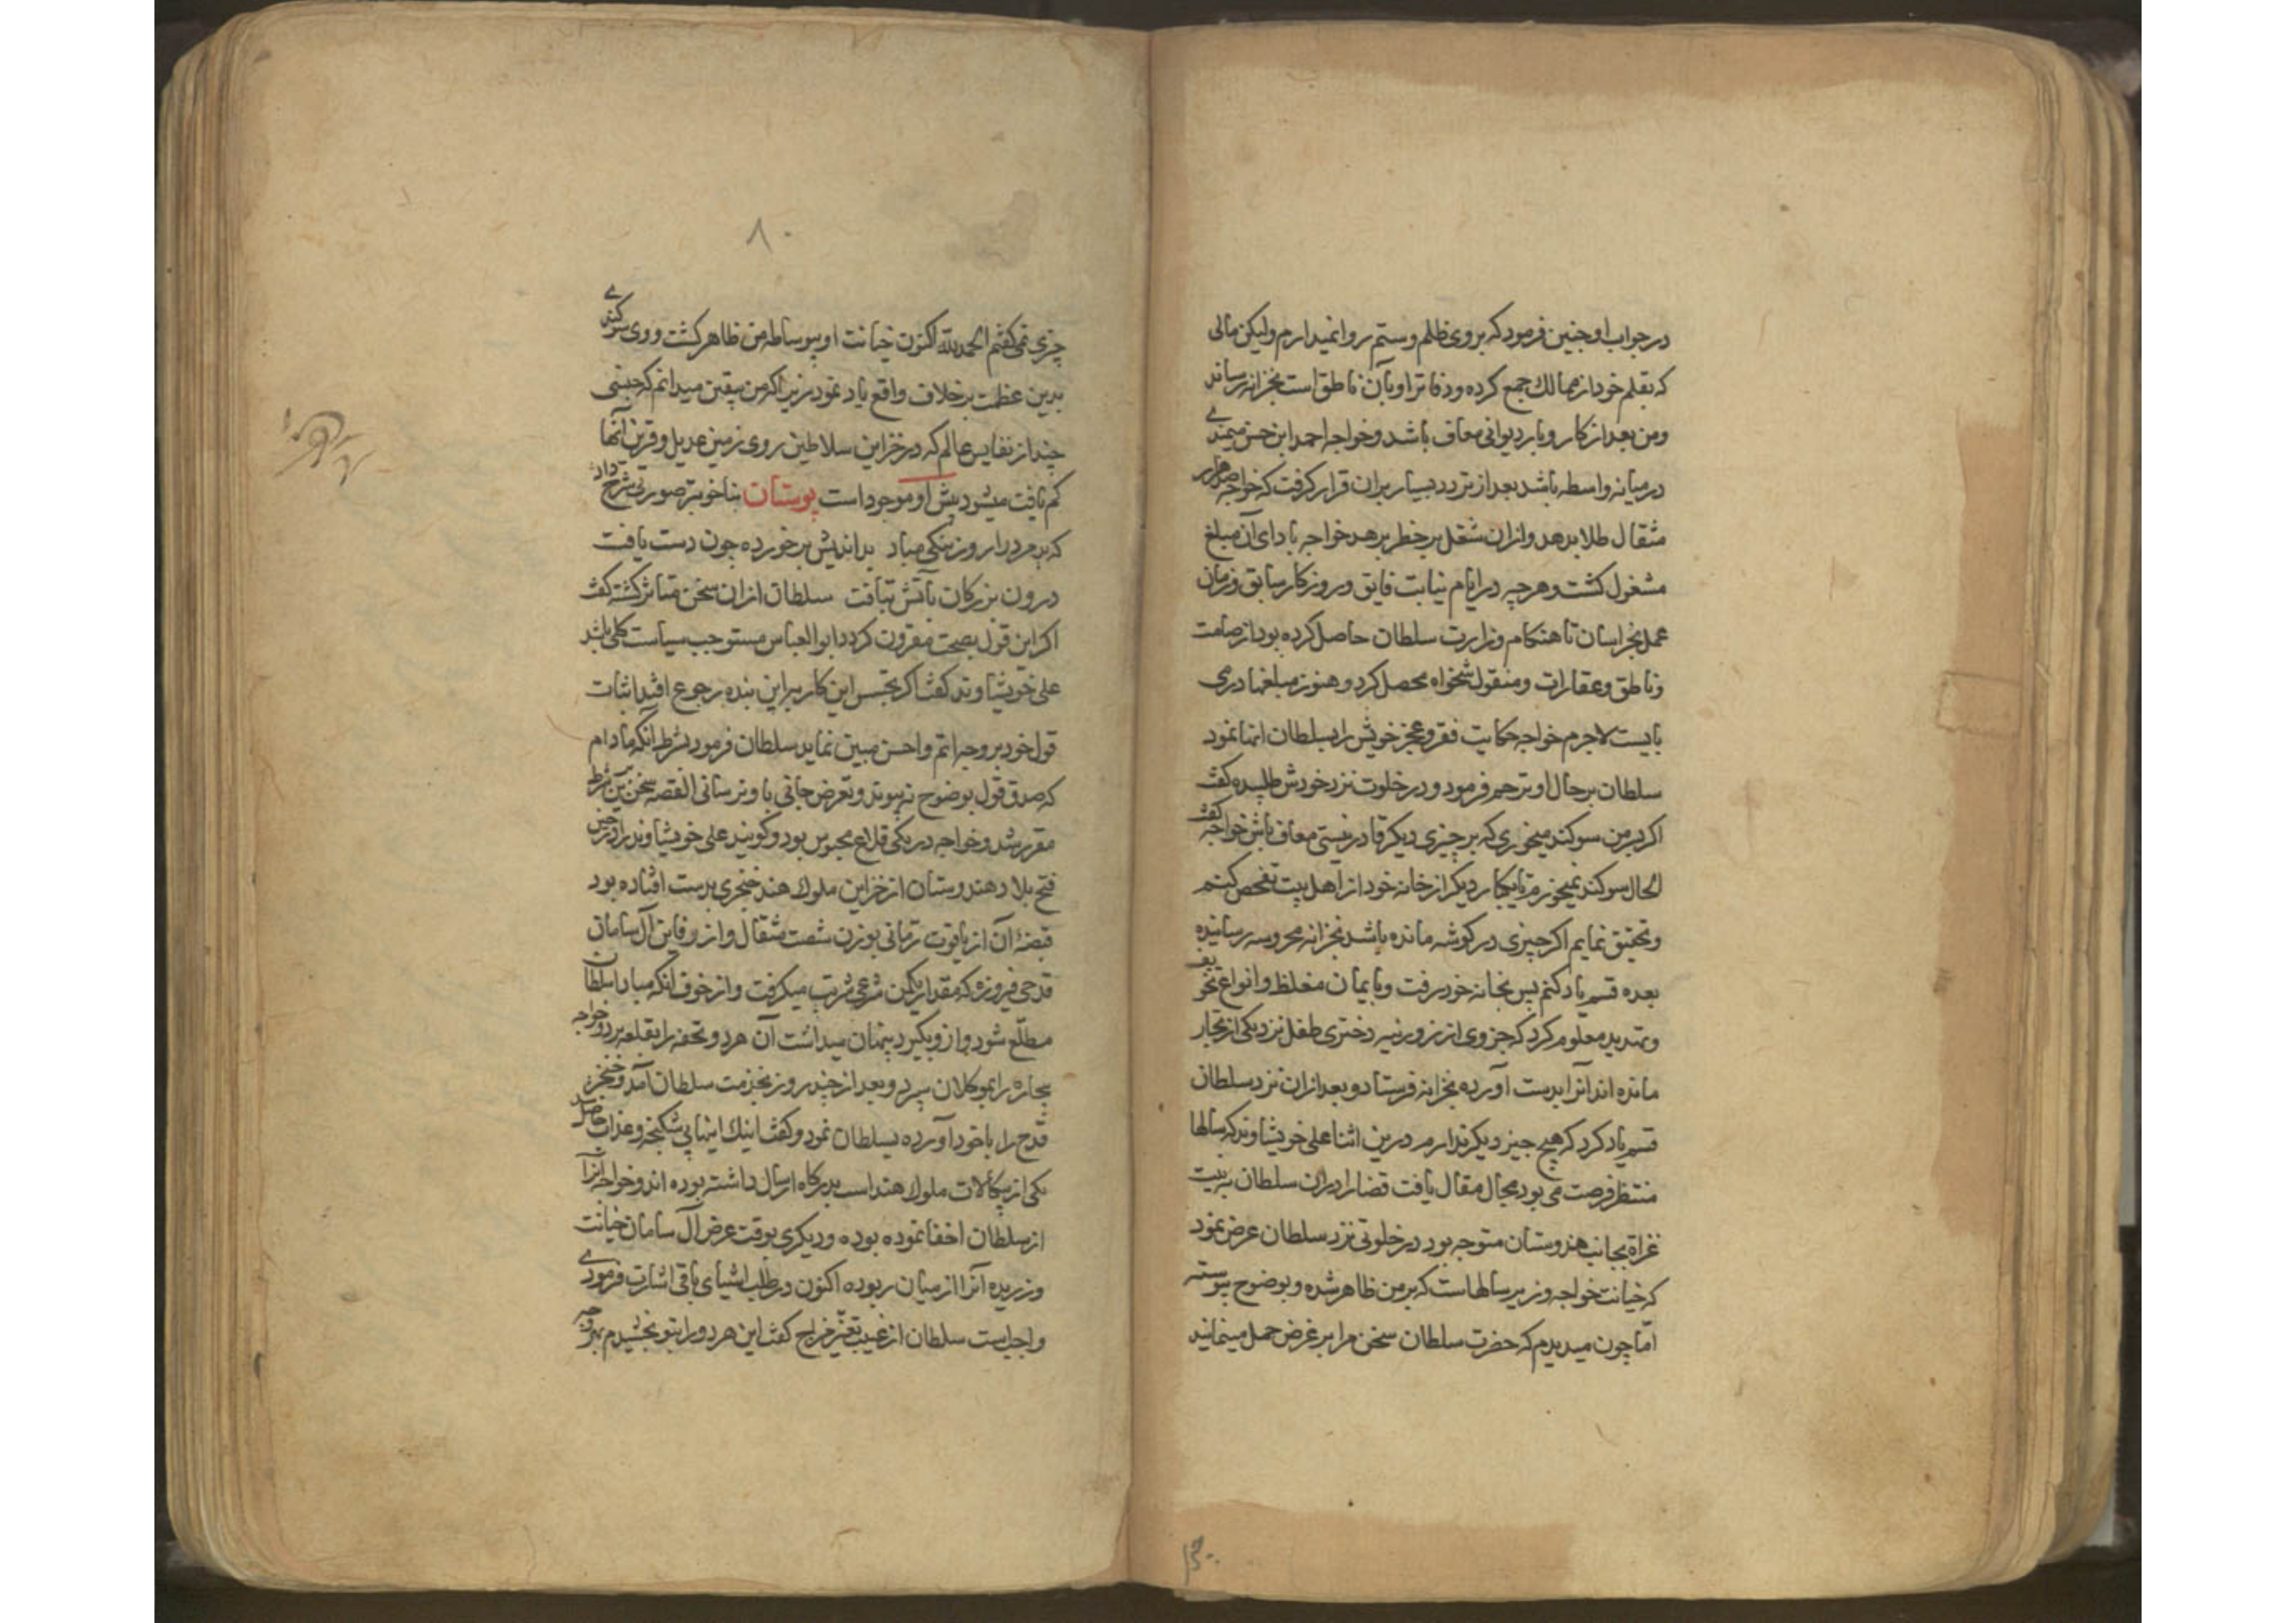 در جواب او چنین فرمود که بروی ظلم و ستم روا نمیدارم ولیکن مالی
که بقلم خود از ممالك جمع کرده و دفاتر او بآن ناطق است بخزانه رساند
و من بعد از کار و بار دیوانی معاف باشد و خواجه احمد ابن حسن میمندی
در میانه واسطه باشد بعد از تردد بسیار بران قرار کرفت که خواجه صد هزار
مثقال طلا بدهد و ازان شغل پر خطر برهد خواجه بادای آن مبلغ
مشغول کشت و هرچه در ایام نیابت فایق و روزکار سابق و زمان
عمل بخراسان تا هنکام وزارت سلطان حاصل کرده بود از صامت
و ناطق و عقارات و منقولات محصل کرد و هنوز مبلغها در می
بایست لاجرم خواجه حکایت فقر و عجز خویش را بسلطان انها نمود
سلطان بر حال او ترحم فرمود و در خلوت نزد خودش طلبیده کفت
اکر بسر من سوکند میخوری که بر چیزی دیکر قادر نیستی معاف باش خواجه کفت
الحال سوکند نمیخورم تا یکبار دیکر از خانه خود از اهل بیت تفحص کنم
و تحقیق نمایم اکر چیزی در کوشه مانده باشد بخزانه محروسه رسانیده
بعده قسم یاد کنم پس بخانه خود رفت و بایمان مغلظ و انواع تخویف
و تهدید معلوم کرد که جزوی از زر و زنیه دختری طفل نزد یکی از تجار
مانده اند آنرا بدست آورده بخزانه فرستاد و بعد ازان نزد سلطان
قسم یاد کرد که هیچ چیز دیکر ندارم درین اثنا علی خویشاوند که سالها
منتظر فرصت می بود مجال مقال یافت قضارا دران سلطان به نیت
غزاة بجانب هندوستان متوجه بود در خلوتی نزد سلطان عرض نمود
که خیانت خواجه وزیر سالهاست که بر من ظاهر شده و بوضوح پیوسته
امّا چون میدیدم که حضرت سلطان سخن مرا بر غرض حمل مینمایند
۸۰
چیزی نمی کفتم الحمد لله اکنون خیانت او بوساطه من ظاهر کشت و وی سوکندی
بدین عظمت بر خلاف واقع یاد نمود زیرا که من بیقین میدانم که جنسی
چند از نفایس عالم که در خزاین سلاطین روی زمین عدیل و قرین آنها
کم یافت میشود پیش او موجود است بوستان بناخوبتر صورتی شرح داد
که بد مرد را روز نیکی مباد بداندیش بر خورده چون دست یافت
درون بزرکان بآتش بتافت سلطان ازان سخن متاثر کشته کفت
اکر این قول بصحت مقرون کردد ابو العباس مستوجب سیاست کلی باشد
علی خویشاوند کفت اکر تجسس این کار براین بنده رجوع افتد اثبات
قول خود بر وجه اتم و احسن مبین نماید سلطان فرمود بشرط آنکه مادام
که صدق قول بوضوح نه پیوندد تعرض جانی باو نرسانی القصه سخن برین شرط
مقرر شد و خواجه در یکی قلاع محبوس بود و کویند علی خویشاوند را در حین
فتح بلاد هندوستان از خزاین ملوك هند خنجری بدست افتاده بود
قبضهٔ آن از یاقوت رمانی بوزن شصت مثقال و از دفاین آل سامان
قدحی فیروزه که مقدار یکمن شرعی شربت میکرفت و از خوف آنکه مبادا سلطان
مطلّع شود و ازو بکیرد پنهان میداشت آن هر دو تحفه را بقلعه برد و خواجه
بیچاره را بموکلان سپرد و بعد از چند روز بخدمت سلطان آمد و خنجر
قدح را با خود آورده بسلطان نمود و کفت اینك اینها بی شکنجه و عذاب حاصل شد
یکی از پیکالات ملوك هند است بدرکاه ارسال داشته بوده اند و خواجه آنرا
از سلطان اخفا نموده بوده و دیکری بوقت عرض آل سامان خیانت
ورزیده آنرا از میان ربوده اکنون در طلب اشیای باقی اشارت فرمودی
واجبست سلطان از غیب کفت این هر دو را بتو بخشیدم بهر وجه